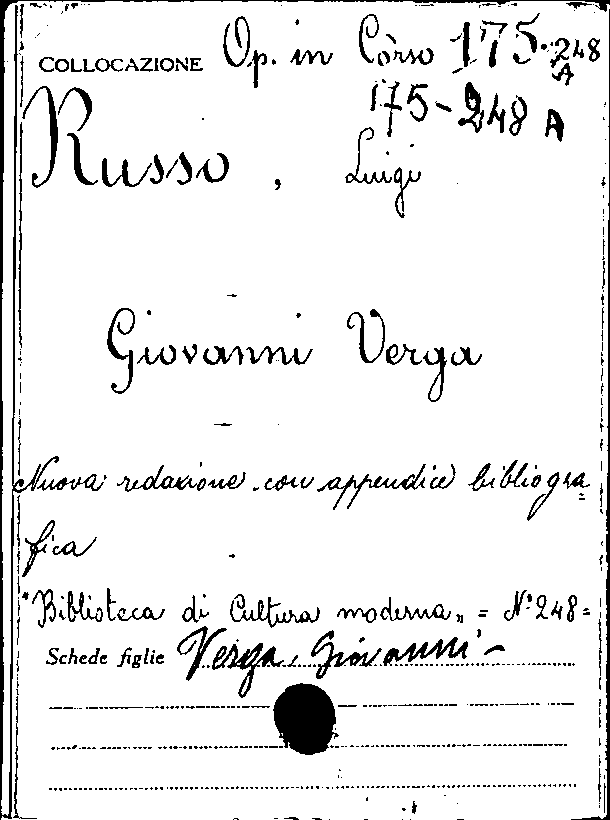 COLLOCAZIONE Op. in Còrso 175-248
A
175-248 A
Russo, Luigi
Giovanni Verga
Nuova redazione con appendice bibliogra=
fica
"Biblioteca di Cultura moderna„ = N° 248=
Schede figlie Verga, Giovanni -